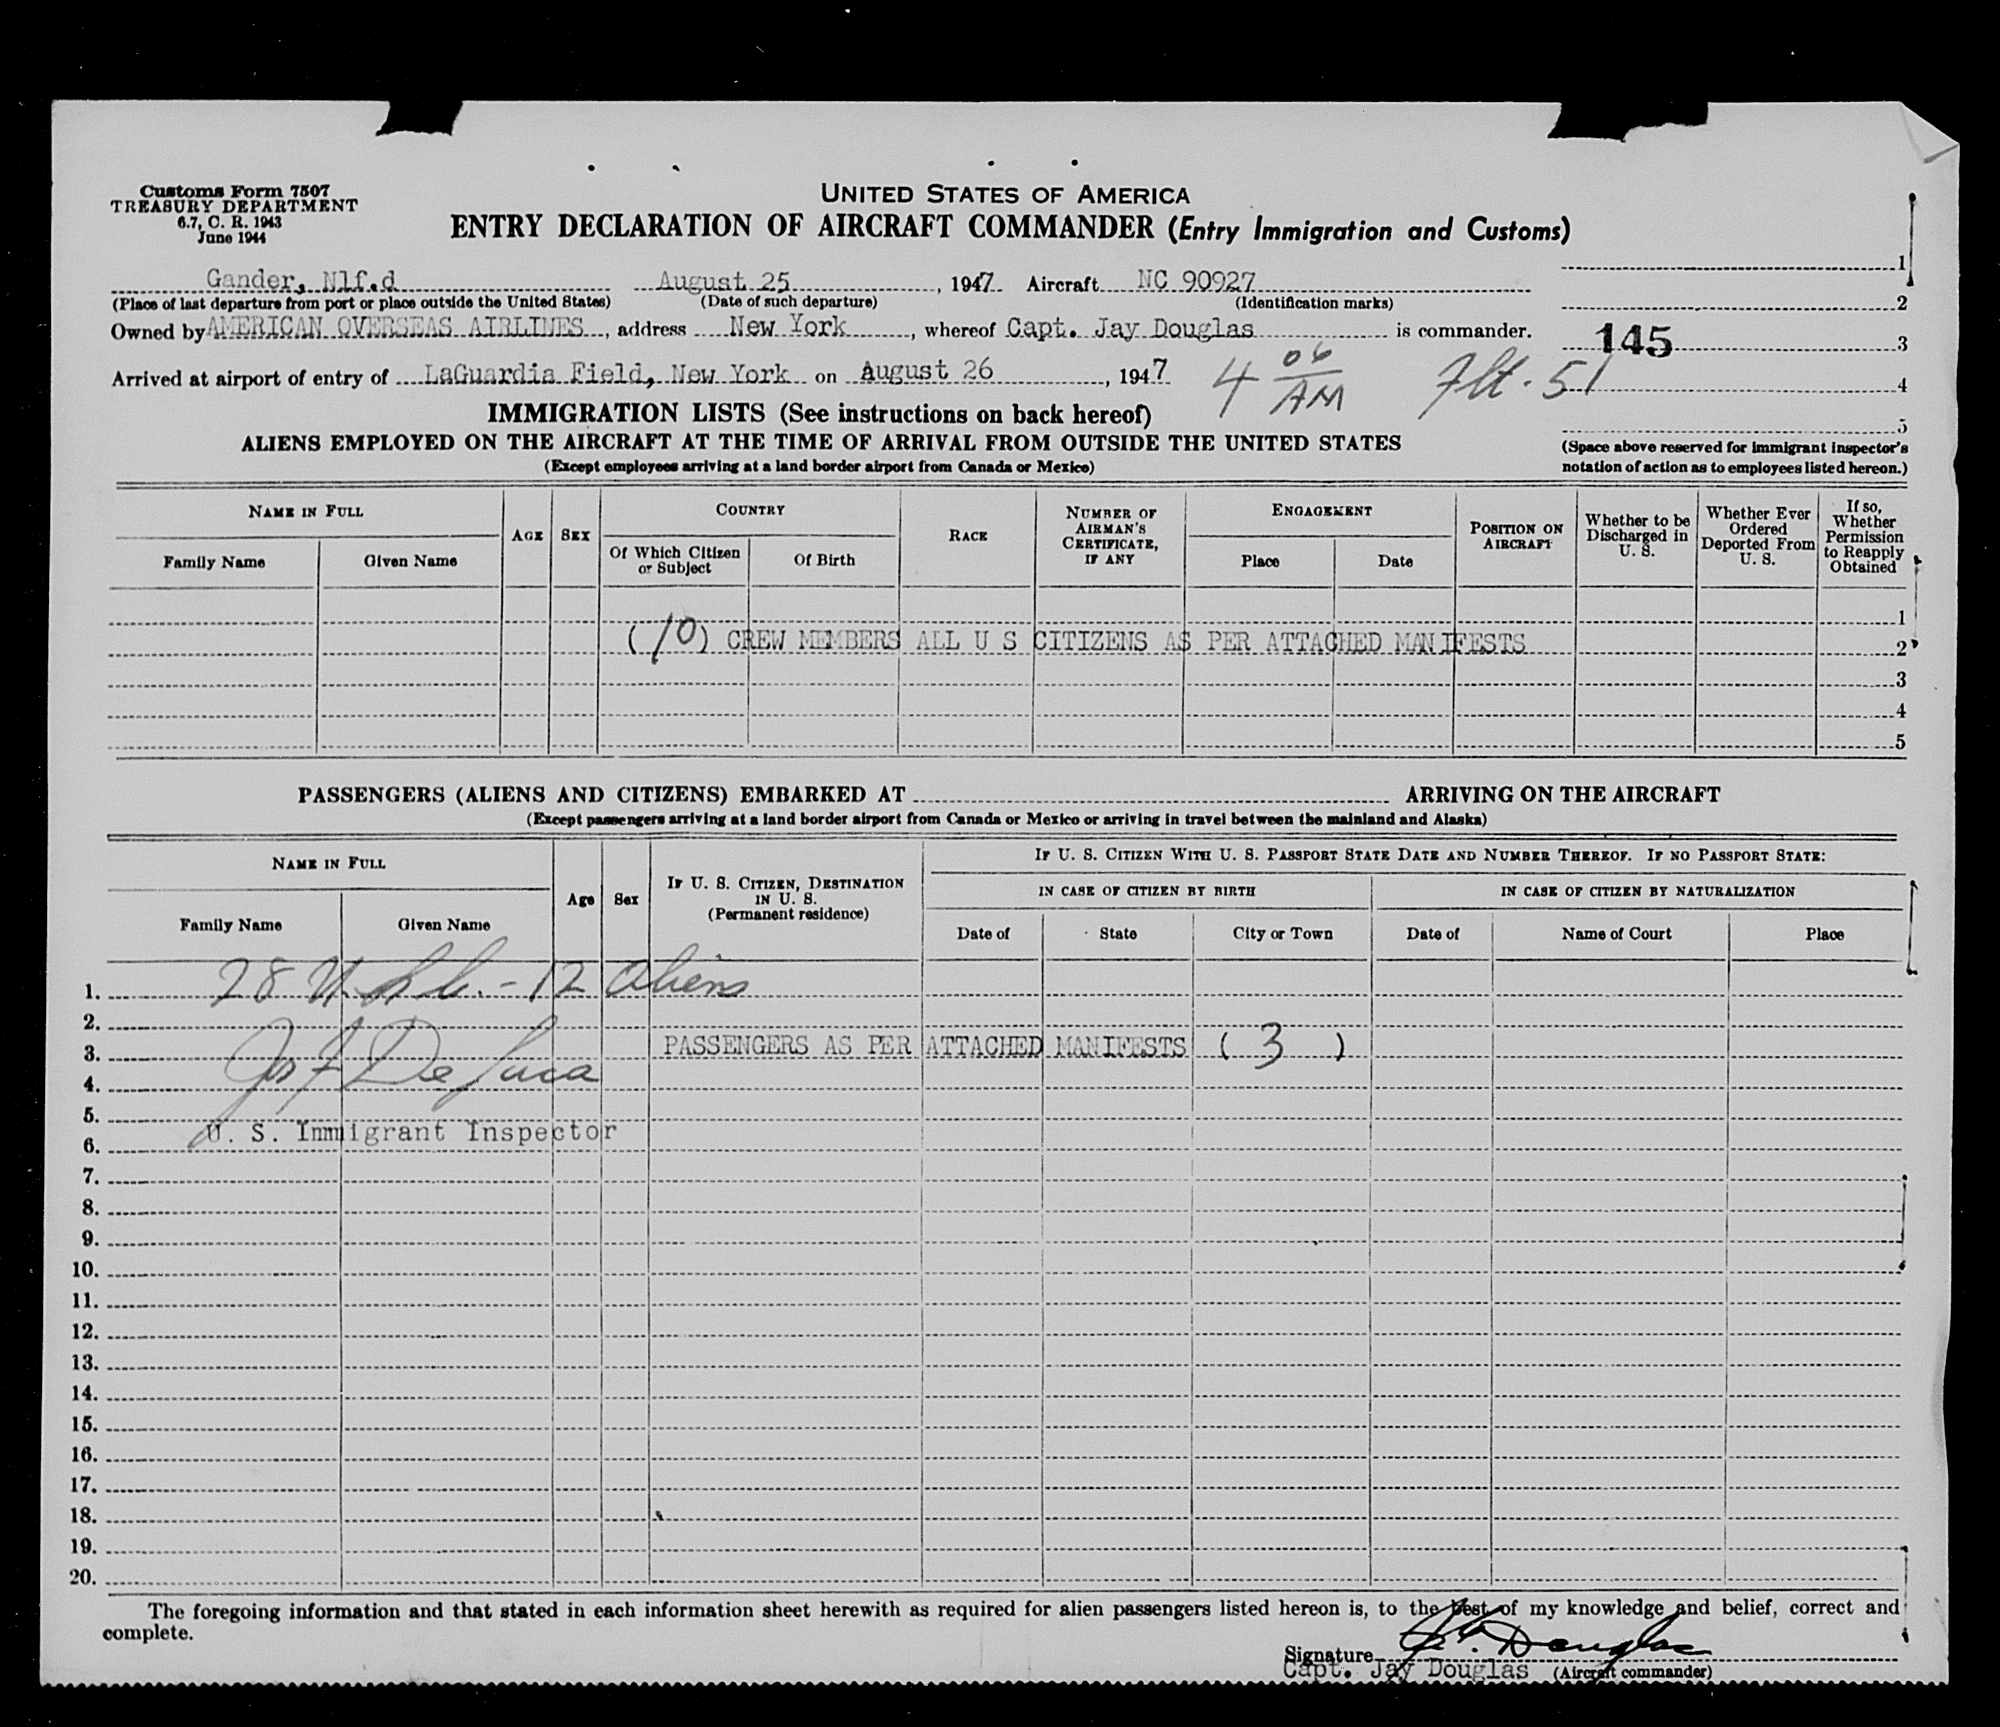 Customs Form 7507
TREASURY DEPARTMENT
6.7, C. R. 1943
June 1944
UNITED STATES OF AMERICA
ENTRY DECLARATION OF AIRCRAFT COMMANDER (Entry Immigration and Customs)
Gander, Nlf.d August 25, 1947 Aircraft NC 90927
(Place of last departure from port or place outside the United States) (Date of such departure) (Identification marks)
Owned by AMERICAN OVERSEAS AIRLINES, address New York, whereof Capt. Jay Douglas is commander.
Arrived at airport of entry of LaGuardia Field, New York on August 26, 1947 4 06 AM Flt. 51
1
2
145 3
4
5
(Space above reserved for immigrant inspector's
notation of action as to employees listed hereon.)
IMMIGRATION LISTS (See instructions on back hereof)
ALIENS EMPLOYED ON THE AIRCRAFT AT THE TIME OF ARRIVAL FROM OUTSIDE THE UNITED STATES
(Except employees arriving at a land border airport from Canada or Mexico)
NAME IN FULL
Family Name Given Name
AGE SEX
COUNTRY
Of Which Citizen or Subject
Of Birth
RACE
NUMBER OF AIRMAN'S CERTIFICATE, IF ANY
ENGAGEMENT
Place Date
POSITION ON AIRCRAFT
Whether to be Discharged in U. S.
Whether Ever Ordered Deported From U. S.
If so, Whether Permission to Reapply Obtained
1
(10) CREW MEMBERS ALL U S CITIZENS AS PER ATTACHED MANIFESTS 2
3
4
5
PASSENGERS (ALIENS AND CITIZENS) EMBARKED AT ARRIVING ON THE AIRCRAFT
(Except passengers arriving at a land border airport from Canada or Mexico or arriving in travel between the mainland and Alaska)
NAME IN FULL
Family Name Given Name
Age Sex
IF U. S. CITIZEN, DESTINATION IN U. S.
(Permanent residence)
IF U. S. CITIZEN WITH U. S. PASSPORT STATE DATE AND NUMBER THEREOF. IF NO PASSPORT STATE:
IN CASE OF CITIZEN BY BIRTH IN CASE OF CITIZEN BY NATURALIZATION
Date of State City or Town Date of Name of Court Place
1. 28 - 12 Aliens
2.
3. PASSENGERS AS PER ATTACHED MANIFESTS ( 3 )
4. Jos F De Luca
5.
6. U. S. Immigrant Inspector
7.
8.
9.
10.
11.
12.
13.
14.
15.
16.
17.
18.
19.
20.
The foregoing information and that stated in each information sheet herewith as required for alien passengers listed hereon is, to the best of my knowledge and belief, correct and
complete.
Signature Douglas
Capt. Jay Douglas (Aircraft commander)